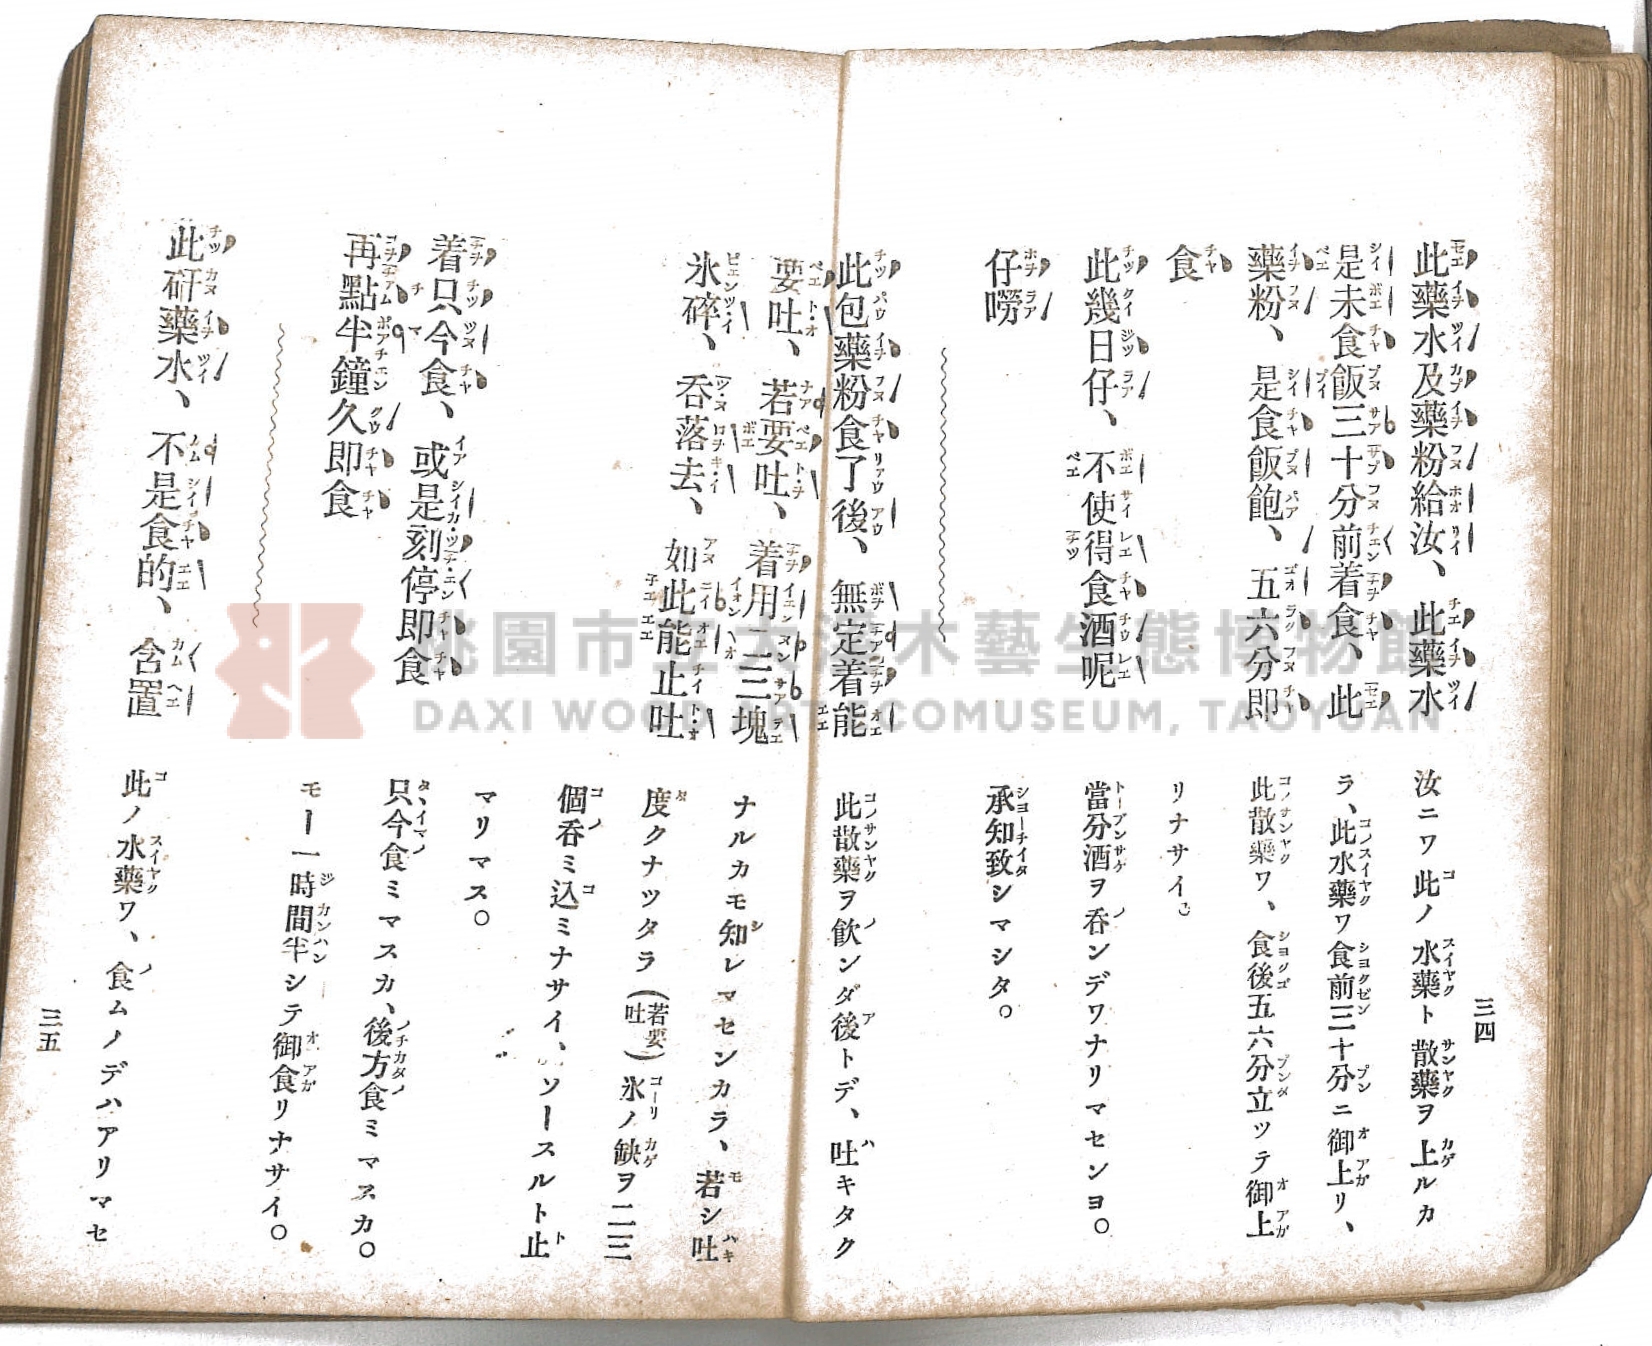 三四
此藥水及藥粉給汝、此藥水
是未食飯三十分前着食、此
藥粉、是食飯飽、五六分即
食
此幾日仔、不使得食酒呢
仔嘮
汝ニワ此ノ水藥ト散藥ヲ上ルカ
ラ、此水藥ワ食前三十分ニ御上リ、
此散藥ワ、食後五六分立ッテ御上
リナサイ。
當分酒ヲ呑ンデワナリマセンヨ。
承知致シマシタ。
此包藥粉食了後、無定着能
要吐、若要吐、着用二三塊
氷碎、呑落去、如此能止吐
此散藥ヲ飮ンダ後トデ、吐キタク
ナルカモ知レマセンカラ、若シ吐
度クナツタラ(若要吐)氷ノ缺ヲ二三
個呑ミ込ミナサイ、ソースルト止
マリマス。
着只今食、或是刻停即食
再點半鐘久即食
只今食ミマスカ、後方食ミマスカ。
モー一時間半シテ御食リナサイ。
此矸藥水、不是食的、含置
此ノ水藥ワ、食ムノデハアリマセ
三五
桃園市立大溪木藝生態博物館
DAXI WOOD ART ECOMUSEUM, TAOYUAN